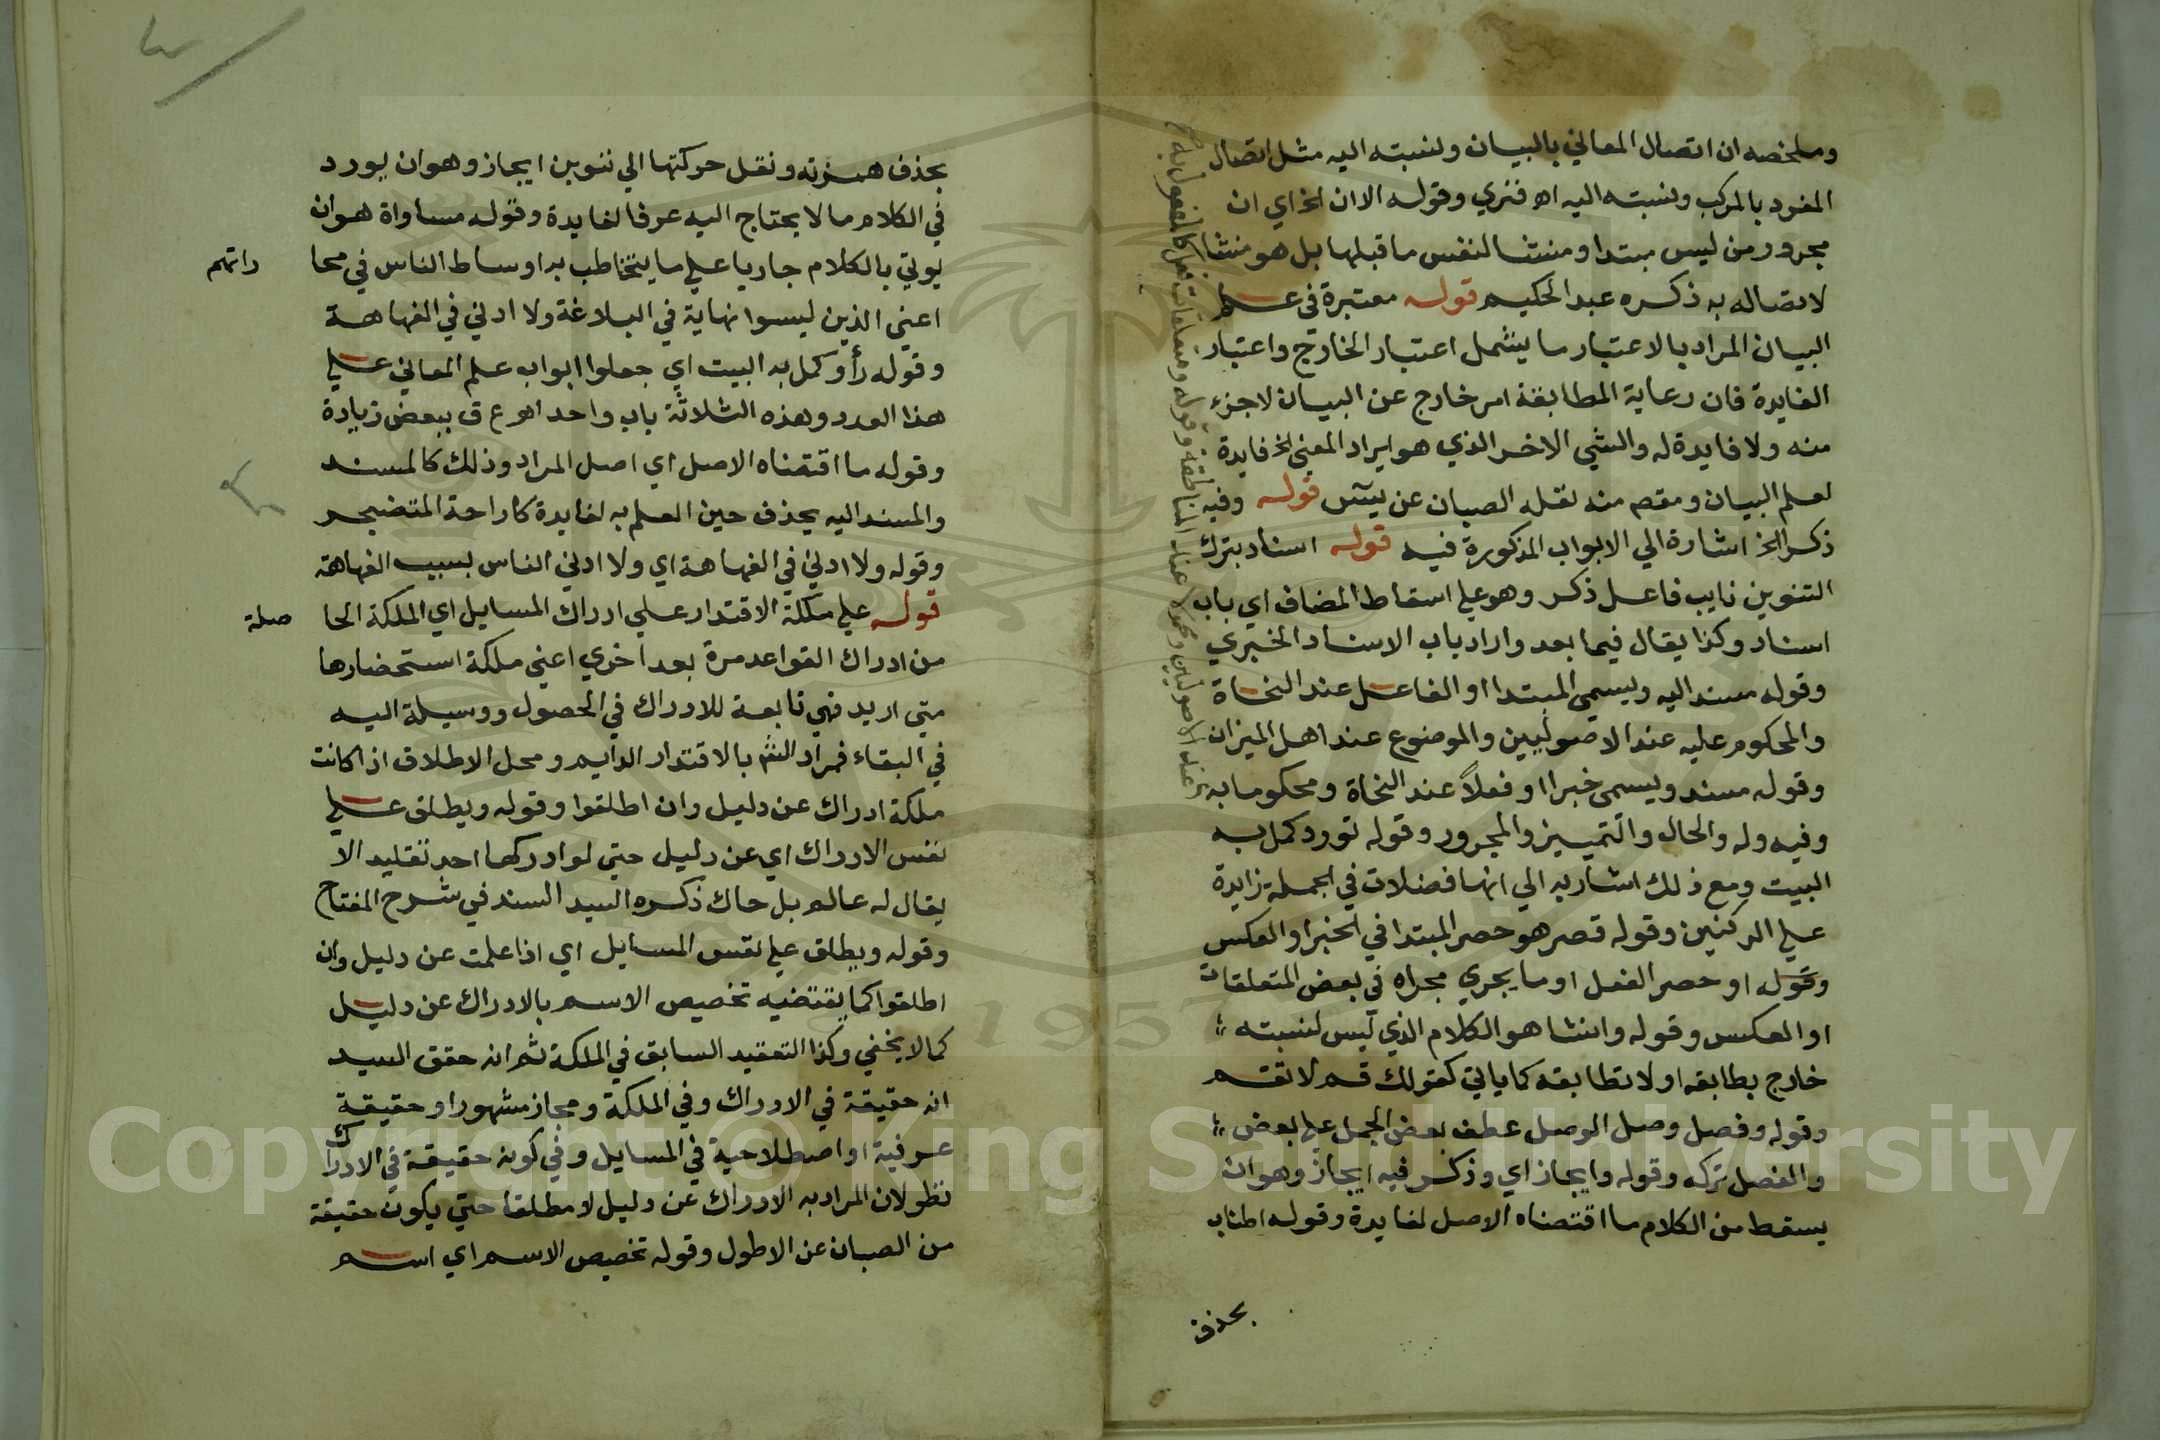 وملخصه ان اتصال المعاني بالبيان ولنسبته اليه مثل اتصال
المفرد بالمركب ونسبته اليه اه فنري وقوله الا ان الخ اي ان
مجرور من ليس مبتدا ومنشا لنفس ما قبلها بل هو منشا
لاتصاله به ذكره عبد الحكيم قوله معتبرة في علم
البيان المراد بالاعتبار ما يشمل اعتبار الخارج واعتبار
الفايدة فان رعاية المطابقة امر خارج عن البيان لا جزء
منه ولا فايدة له والشي الاخر الذي هو ايراد المعنى الخ فايدة
لعلم البيان ومقصم منه نقله الصبان عن يسٓ قوله وفيه
ذكر الخ اشارة الي الابواب المذكورة فيه قوله اسناد بترك
التنوين نايب فاعل ذكر وهو علي اسقاط المضاف اي باب
اسناد وكذا يقال فيما بعد واراد باب الاسناد الخبري
وقوله مسند اليه ويسمى المبتدا او الفاعل عند النحاة
والمحكوم عليه عند الاصوليين والموضوع عند اهل الميزان
وقوله مسند ويسمى خبرا او فعلاً عند النحاة ومحكوما به
وفيه وله والحال والتمييز والمجرور وقوله تورد كمل به
البيت ومع ذلك اشار به الي انها فضلات في الجملة زايدة
علي الركنين وقوله قصر هو حصر المبتدا في الخبر او العكس
وقوله او حصر الفعل او ما يجري مجراه في بعض المتعلقات
او العكس وقوله وانشا هو الكلام الذي ليس لنسبته
خارج يطابقه او لا تطابقه كما ياتي كقولك قم لا تقم
وقوله وفصل وصل الوصل عطف بعض الجمل علي بعض
والفصل تركه وقوله وايجاز اي وذكر فيه ايجاز وهو ان
يسقط من الكلام ما اقتضاه الاصل لفايدة وقوله اطناب
بحذف
وقوله ومتعلقات فعل كالمفعول به
بحذف همزته ونقل حركتها الي تنوين ايجاز وهو ان يورد
في الكلام ما لا يحتاج اليه عرفا لفايدة وقوله مساواة هو ان
يوتي بالكلام جاريا علي ما يتخاطب به اوساط الناس في محا
راتهم
اعني الذين ليسوا نهاية في البلاغة ولا ادني في الفهاهة
وقوله رأوا كمل به البيت اي جعلوا ابواب علم المعاني علي
هذا العدد وهذه الثلاثة باب واحد اه ع ق ببعض زيادة
وقوله ما اقتضاه الاصل اي اصل المراد وذلك كالمسند
والمسند اليه يحذف حين العلم به لفايدة كاراحة المتضجر
وقوله ولا ادني في الفهاهة اي ولا ادني الناس بسبب الفهاهة
قوله علي ملكة الاقتدار علي ادراك المسايل اي الملكة الحا
صلة
من ادراك القواعد مرة بعد اخري اعني ملكة استحضارها
متي اريد فهي تابعة للادراك في الحصول ووسيلة اليه
في البقاء فمراد الشم بالاقتدار الدايم ومحل الاطلاق اذا كانت
ملكة ادراك عن دليل وان اطلقوا وقوله ويطلق علي
نفس الادراك اي عن دليل حتي لو ادركها احد تقليد الا
يقال له عالم بل حاك ذكره السيد السند في شرح المفتاح
وقوله ويطلق علي نفس المسايل اي اذا علمت عن دليل وان
اطلقوا كما يقتضيه تخصيص الاسم بالادراك عن دليل
كما لا يخفي وكذا التقييد السابق في الملكة ثم انه حقق السيد
انه حقيقة في الادراك وفي الملكة ومجاز مشهور او حقيقة
عرفية او اصطلاحية في المسايل وفي كونه حقيقة في الادراك
نظر لان المراد به الادراك عن دليل لا مطلقا حتي يكون حقيقة
من الصبان عن الاطول وقوله تخصيص الاسم اي اسم
1957
Copyright © King Saud University